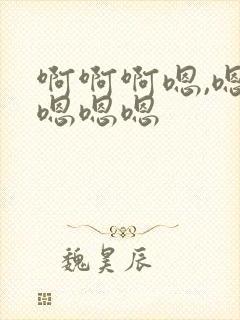 啊啊啊嗯,嗯
嗯嗯嗯
魏昊辰